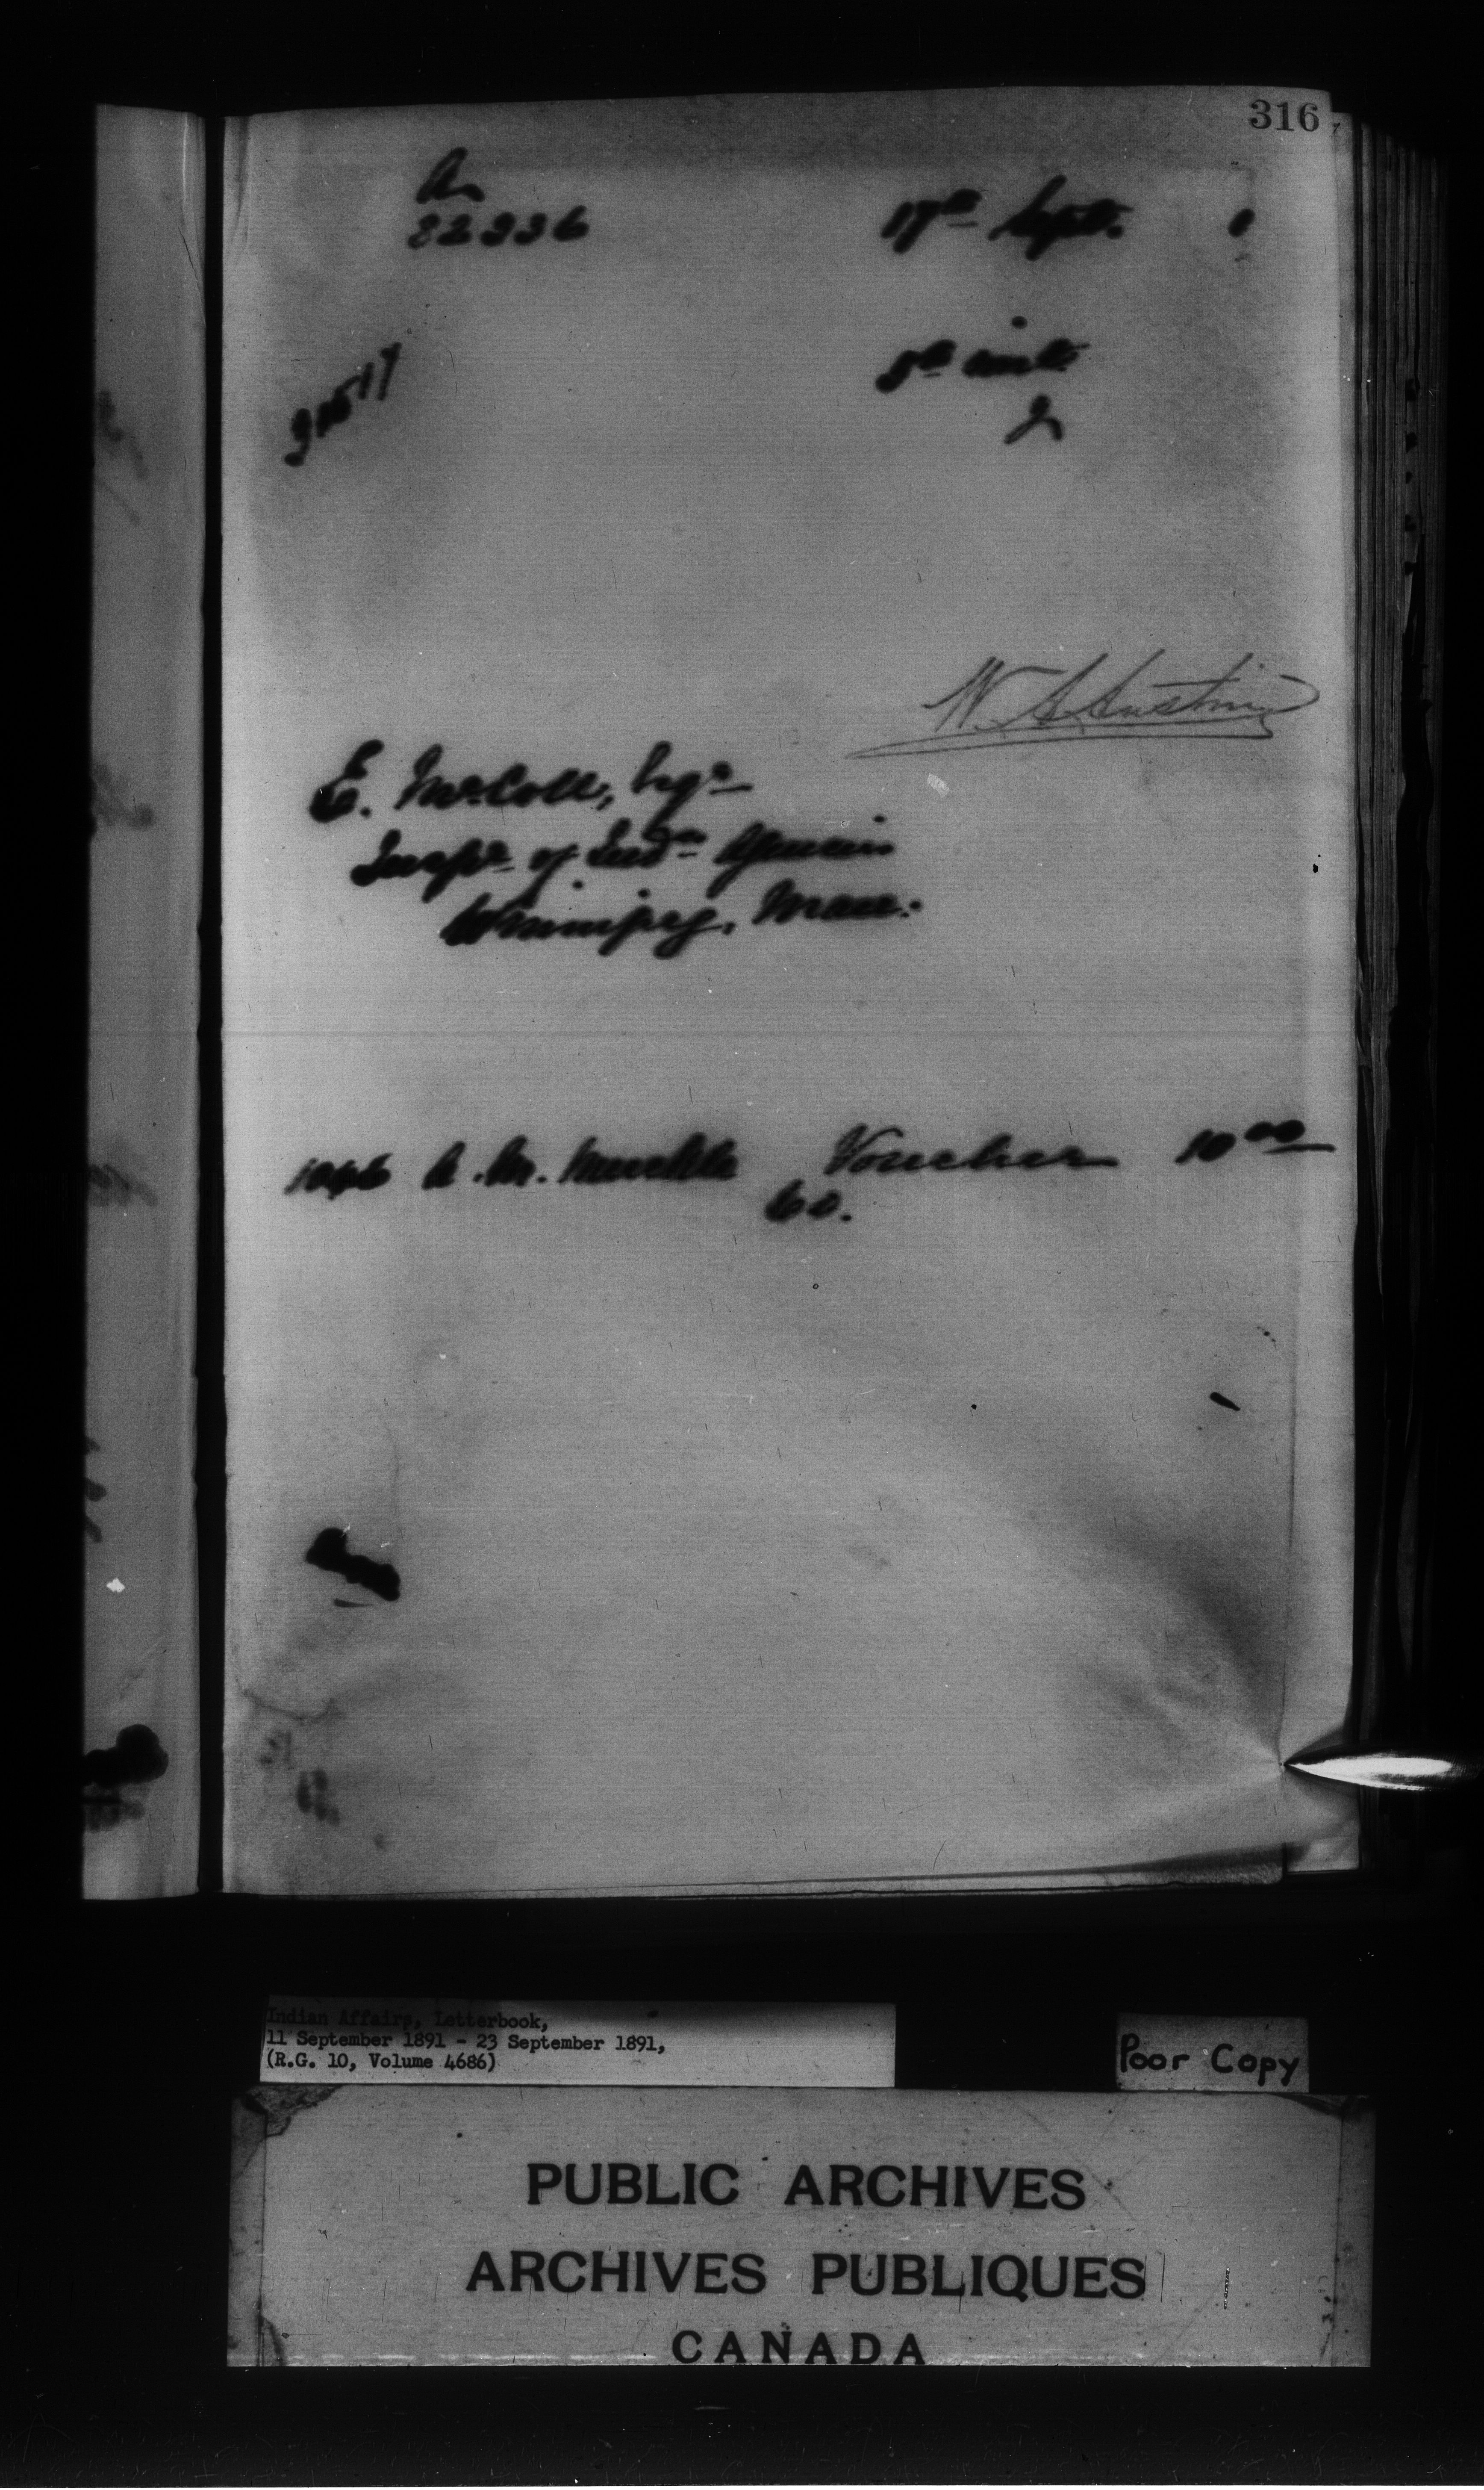 316
A
82336
17th Sept. 1
5th inst.
W. A. Austin
E. McColl, Esqr
Inspr. of Indn Agencies
Winnipeg, Man:
1046 A. M. Muckle Voucher 10 00
60.
Indian Affairs, Letterbook,
11 September 1891 - 23 September 1891,
(R.G. 10, Volume 4686)
Poor Copy
PUBLIC ARCHIVES
ARCHIVES PUBLIQUES
CANADA